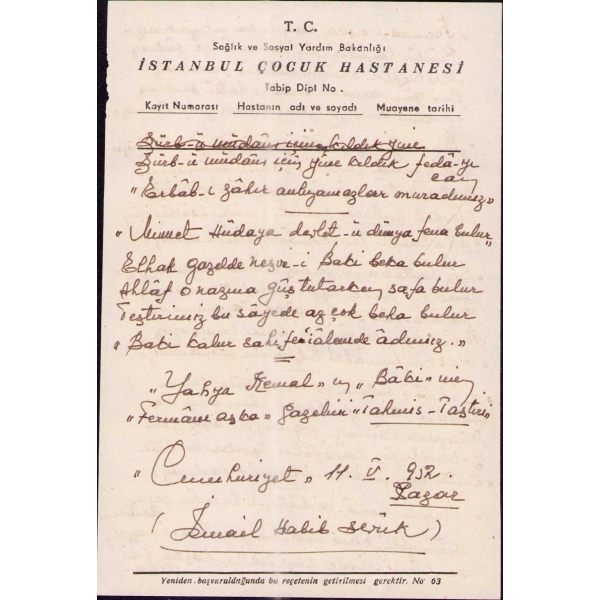 T. C.
Sağlık ve Sosyal Yardım Bakanlığı
İSTANBUL ÇOCUK HASTANESİ
Tabip Dipl No .
Kayıt Numarası Hastanın adı ve soyadı Muayene tarihi
Şürb-ü müdâm için kıldık yine
Şürb-ü müdâm için yine kıldık fedâ-yı can
"Erbâb-ı zâhir anlıyamazlar muradımız"
"Minnet Hüdaya devlet-ü dünya fena bulur"
Elhak gazelde neşve-i Baki beka bulur
Ahlâf o nazma gûş tutarken safa bulur
Teştirimiz bu sâyede az çok beha bulur
"Baki kalur sahife-i âlemde âdımız."
"Yahya Kemal" in "Bâki" nin
"Fermânı aşka" gazelini "Tahmis-Taştiri"
"Cumhuriyet" 11. V. 952.
Pazar
(İsmail Habib Sevük)
Yeniden başvurulduğunda bu reçetenin getirilmesi gerektir. No 63